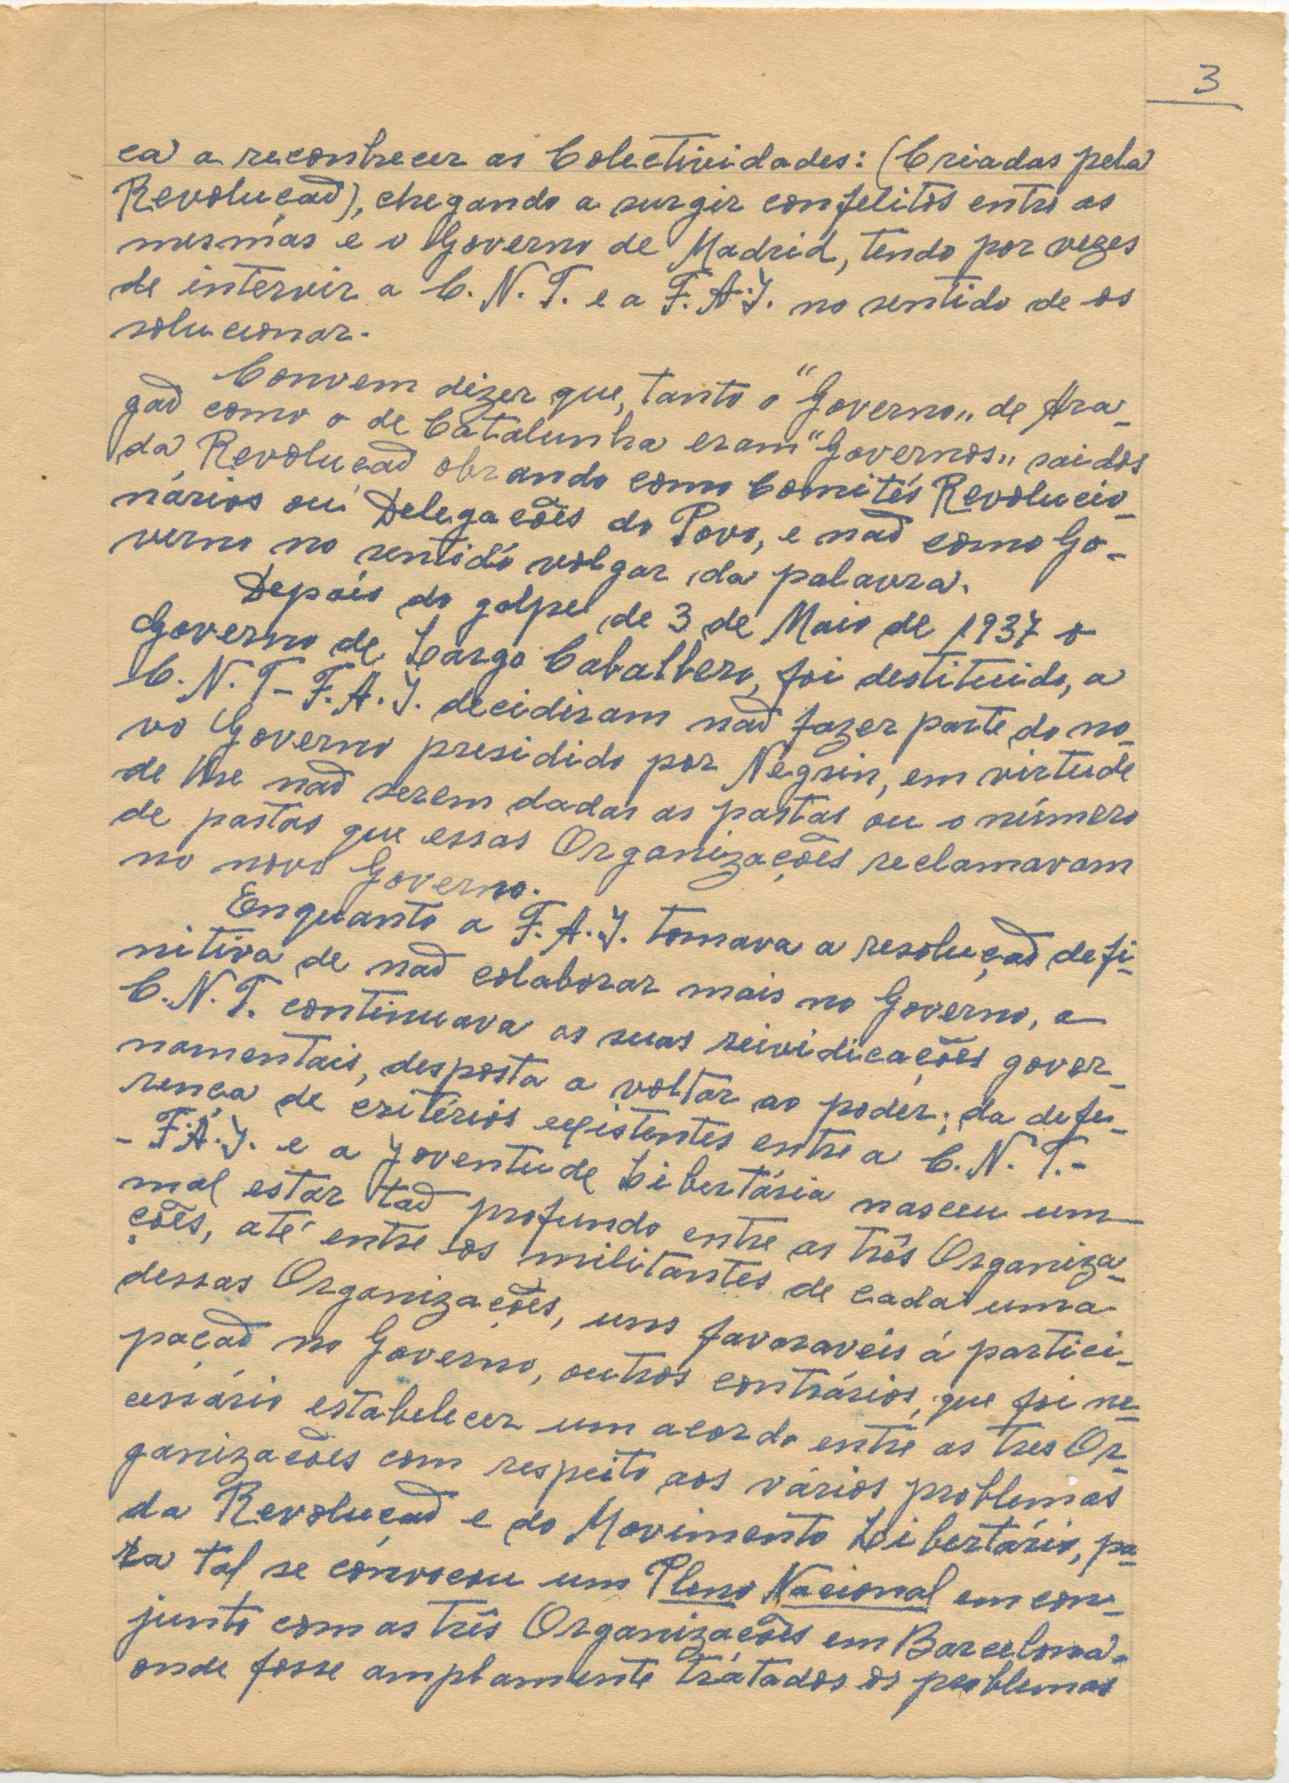 3
ca a reconhecer as Colectividades: (Criadas pela
Revolução), chegando a surgir confelitos entre as
mesmas e o Governo de Madrid, tendo por vezes
de intervir a C. N. T. e a F. A. I. no sentido de os
solucionar.
Convem dizer que, tanto o "Governo„ de Ara-
gaõ como o de Catalunha eram "Governos„ saidos
da Revoluçaõ obrando como Comités Revolucio-
nários ou Delegações do Povo, e naõ como Go-
verno no sentido volgar da palavra.
Depois do golpe de 3 de Maio de 1937 o
Governo de Largo Cabalhero, foi destituido, a
C. N. T - F. A. I. decidiram naõ fazer parte do no-
vo Governo presidido por Négrin, em virtude
de lhe naõ serem dadas as pastas ou o número
de pastas que essas Organizações reclamavam
no novo Governo.
Enquanto a F. A. I. tomava a resoluçaõ defi-
nitiva de naõ colaborar mais no Governo, a
C. N. T. continuava as suas reividicações gover-
namentais, desposta a voltar ao poder; da defe-
rença de critérios existentes entre a C. N. T. -
- F. A. I. e a Joventude Libertária nasceu um
mal estar taõ profundo entre as três Organiza-
ções, até entre os militantes de cada uma
dessas Organizações, uns favoraveis á partici-
paçaõ no Governo, outros contrários, que foi ne-
cessário estabelecer um acordo entre as tres Or-
ganizações com respeito aos vários problemas
da Revoluçaõ e do Movimento Libertário, pa-
ra tal se convocou um Pleno Nacional em con-
junto com as três Organizações em Barcelona.
onde fosse amplamente trátados os problemas